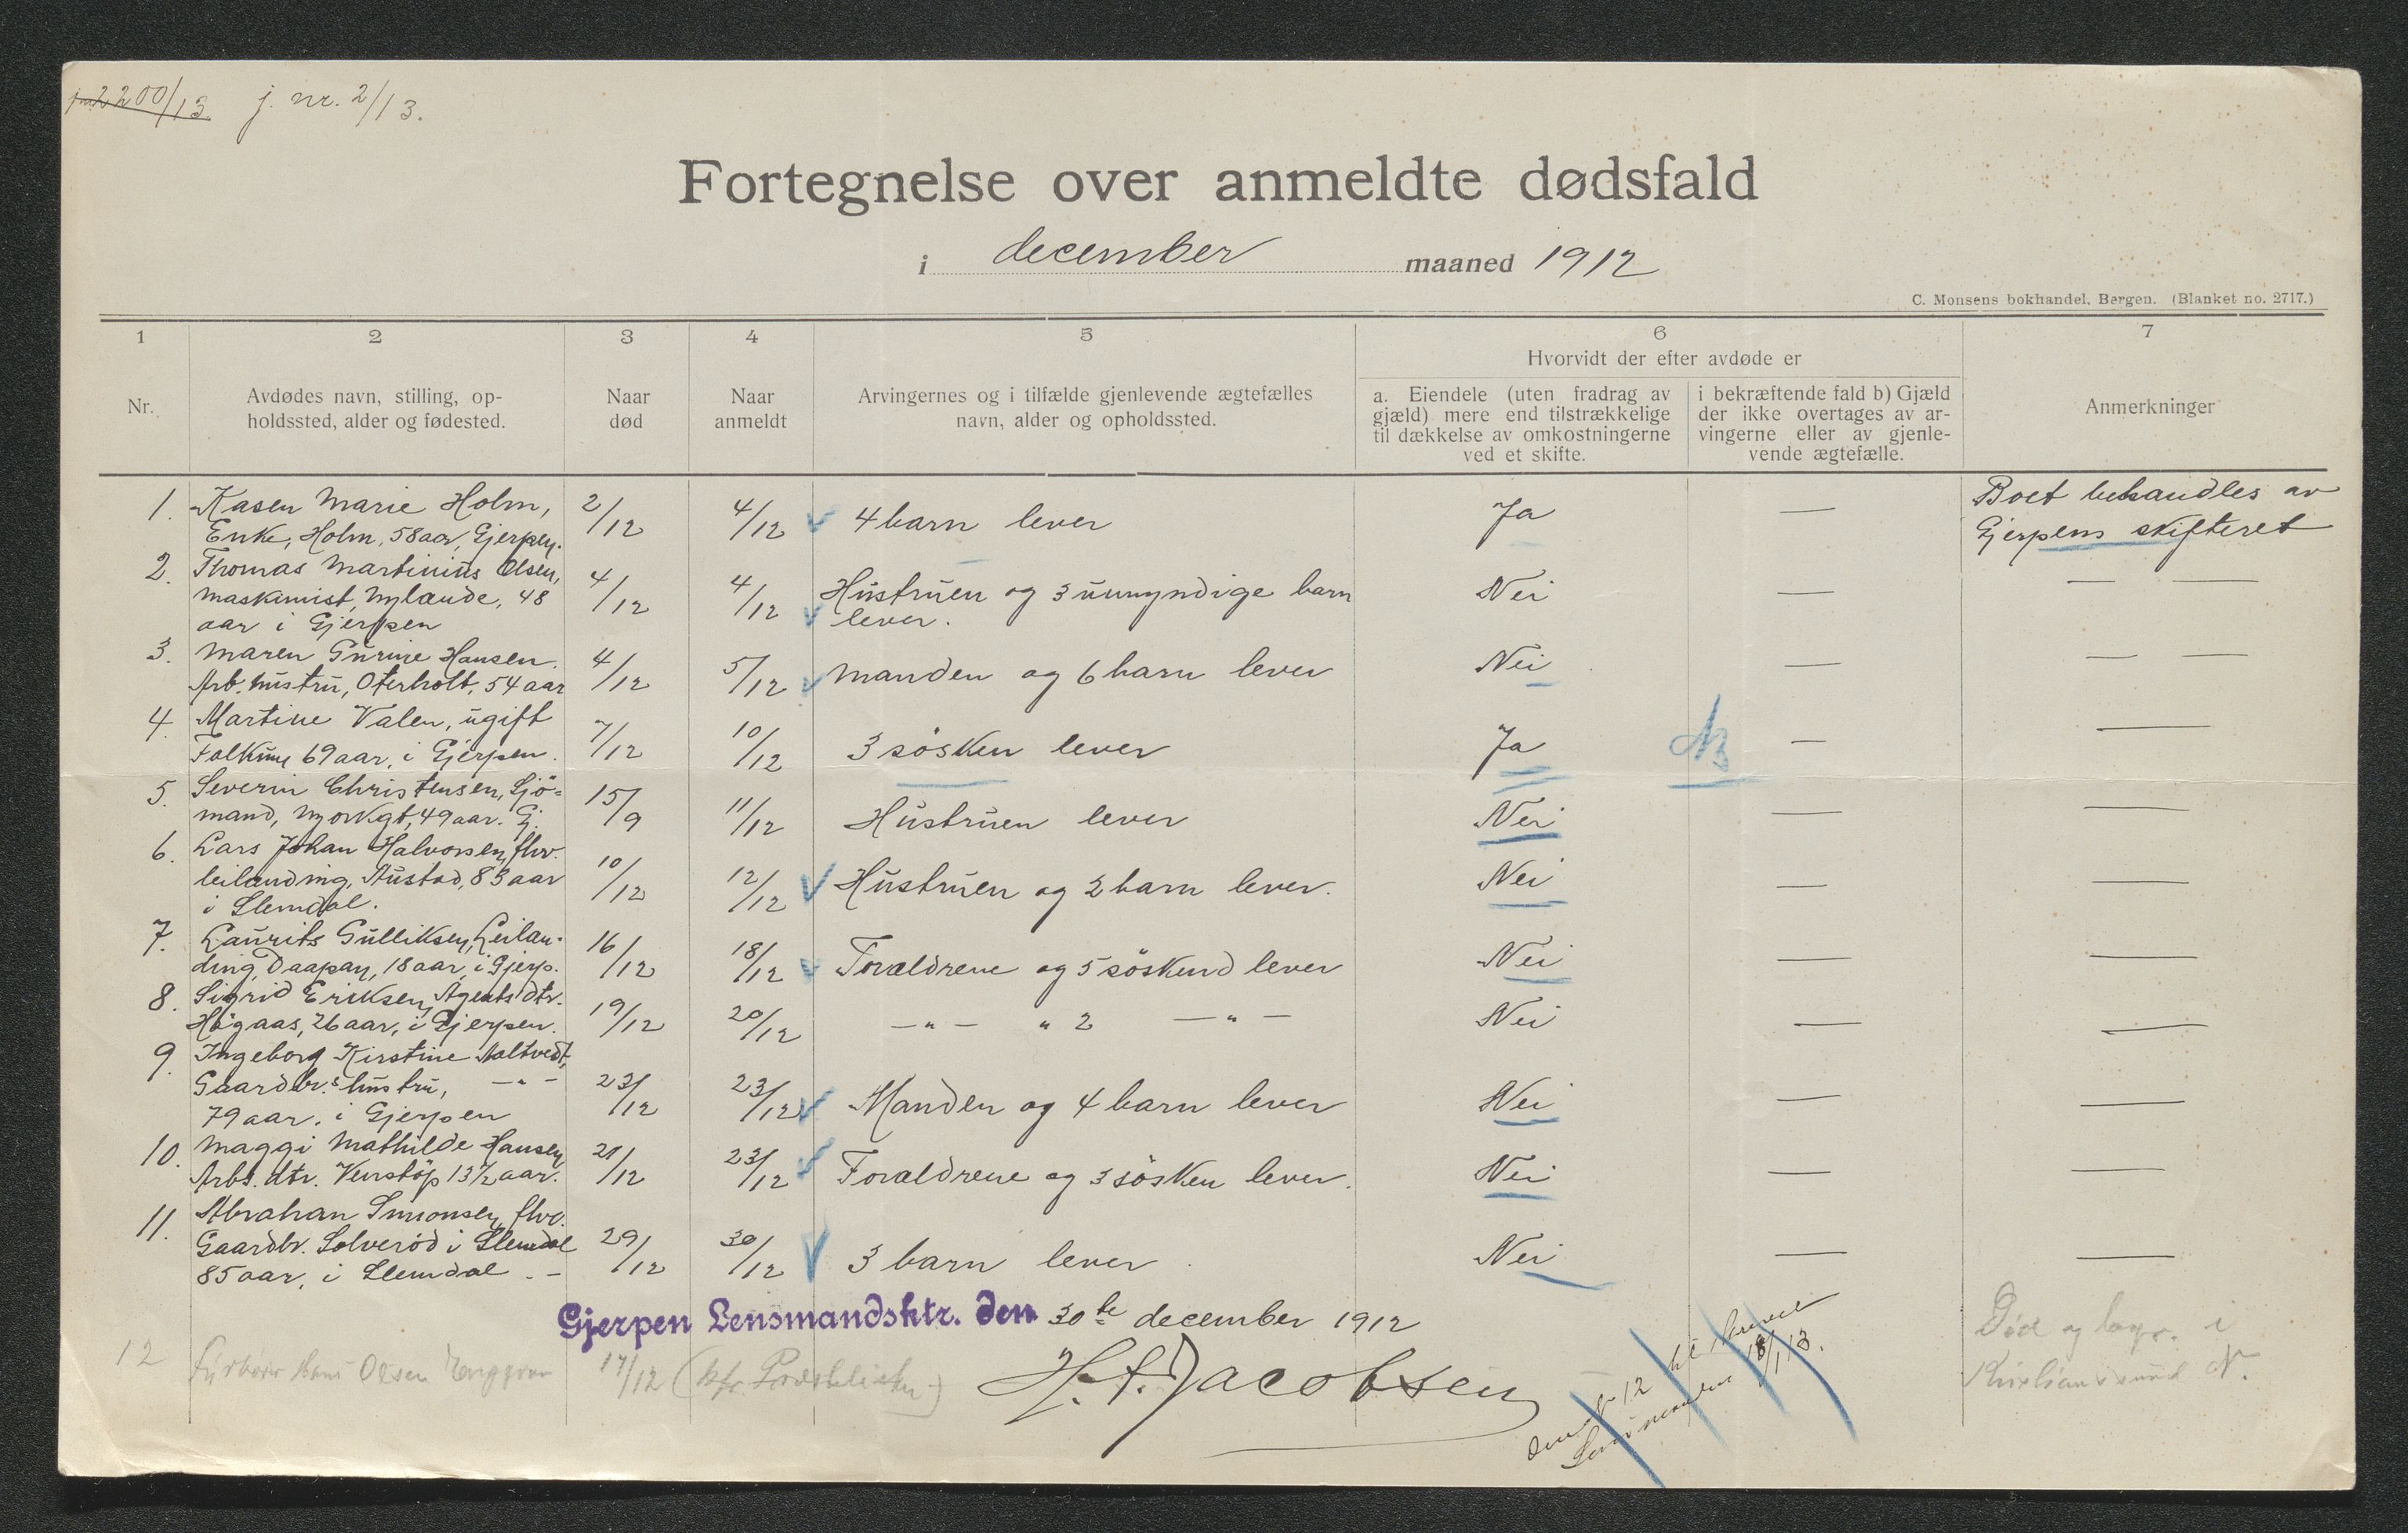 200/13. j. nr. 2/13.
Fortegnelse over anmeldte dødsfald
i december maaned 1912
C. Monsens bokhandel, Bergen. (Blanket no. 2717.)
1 2 3 4 5 6 7
Hvorvidt der efter avdøde er
Nr. Avdødes navn, stilling, op-
holdssted, alder og fødested.
Naar
død
Naar
anmeldt
Arvingernes og i tilfælde gjenlevende ægtefælles
navn, alder og opholdssted.
a. Eiendele (uten fradrag av
gjæld) mere end tilstrækkelige
til dækkelse av omkostningerne
ved et skifte.
i bekræftende fald b) Gjæld
der ikke overtages av ar-
vingerne eller av gjenle-
vende ægtefælle.
Anmerkninger
1. Kasen Marie Holm,
Enke, Holm, 58 aar, Gjerpen.
2/12 4/12 4 barn lever Ja —
Boet behandles av
Gjerpens skifteret
2. Thomas Martinius Olsen,
maskinist, Nylænde, 48
aar i Gjerpen
4/12 4/12 Hustruen og 3 uunyndige barn
lever.
Nei — — —
3. Maren Gurine Hansen.
Arb. hustru, Oterholt, 54 aar
4/12 5/12 manden og 6 barn lever Nei — — —
4. Martine Valen, ugift
Falkum 69 aar, i Gjerpen.
7/12 10/12 3 søsken lever Ja — —
5. Severin Christensen, Sjö=
mand, Nyorkgt, 49 aar. Gj.
15/9 11/12 Hustruen lever Nei — —
6. Lars Johan Halvorsen, fhv.
leilænding, Austad, 83 aar
i Slemdal.
10/12 12/12 Hustruen og 2 barn lever. Nei — —
7. Laurits Gulliksen, Leilæn-
ding, Daapan, 18 aar, i Gjerp.
16/12 18/12 Forældrene og 5 søskend lever Nei — —
8. Sigrid Eriksen, Agents dtr.
Høgaas, 26 aar, i Gjerpen.
19/12 20/12 —"— " 2 —"— Nei — —
9. Ingeborg Kirstine Aaltvedt,
Gaardbr.s hustru, —"—
79 aar. i Gjerpen
23/12 23/12 Manden og 4 barn lever Nei — —
10. Maggi Mathilde Hansen
Arbs. dtr. Venstöp 13½ aar.
21/12 23/12 Forældrene og 3 søsken lever. Nei — —
11. Abrahan Simonsen, fhv.
Gaardbr. Solveröd i Slemdal
85 aar, i Slemdal. —
29/12 30/12 3 barn lever Nei — —
Gjerpen Lensmandsktr. den 30te december 1912
12 Olsen 17/12
H. A. Jacobsen
12 18/1 13.
Död og begr. i
Kristiansund N.